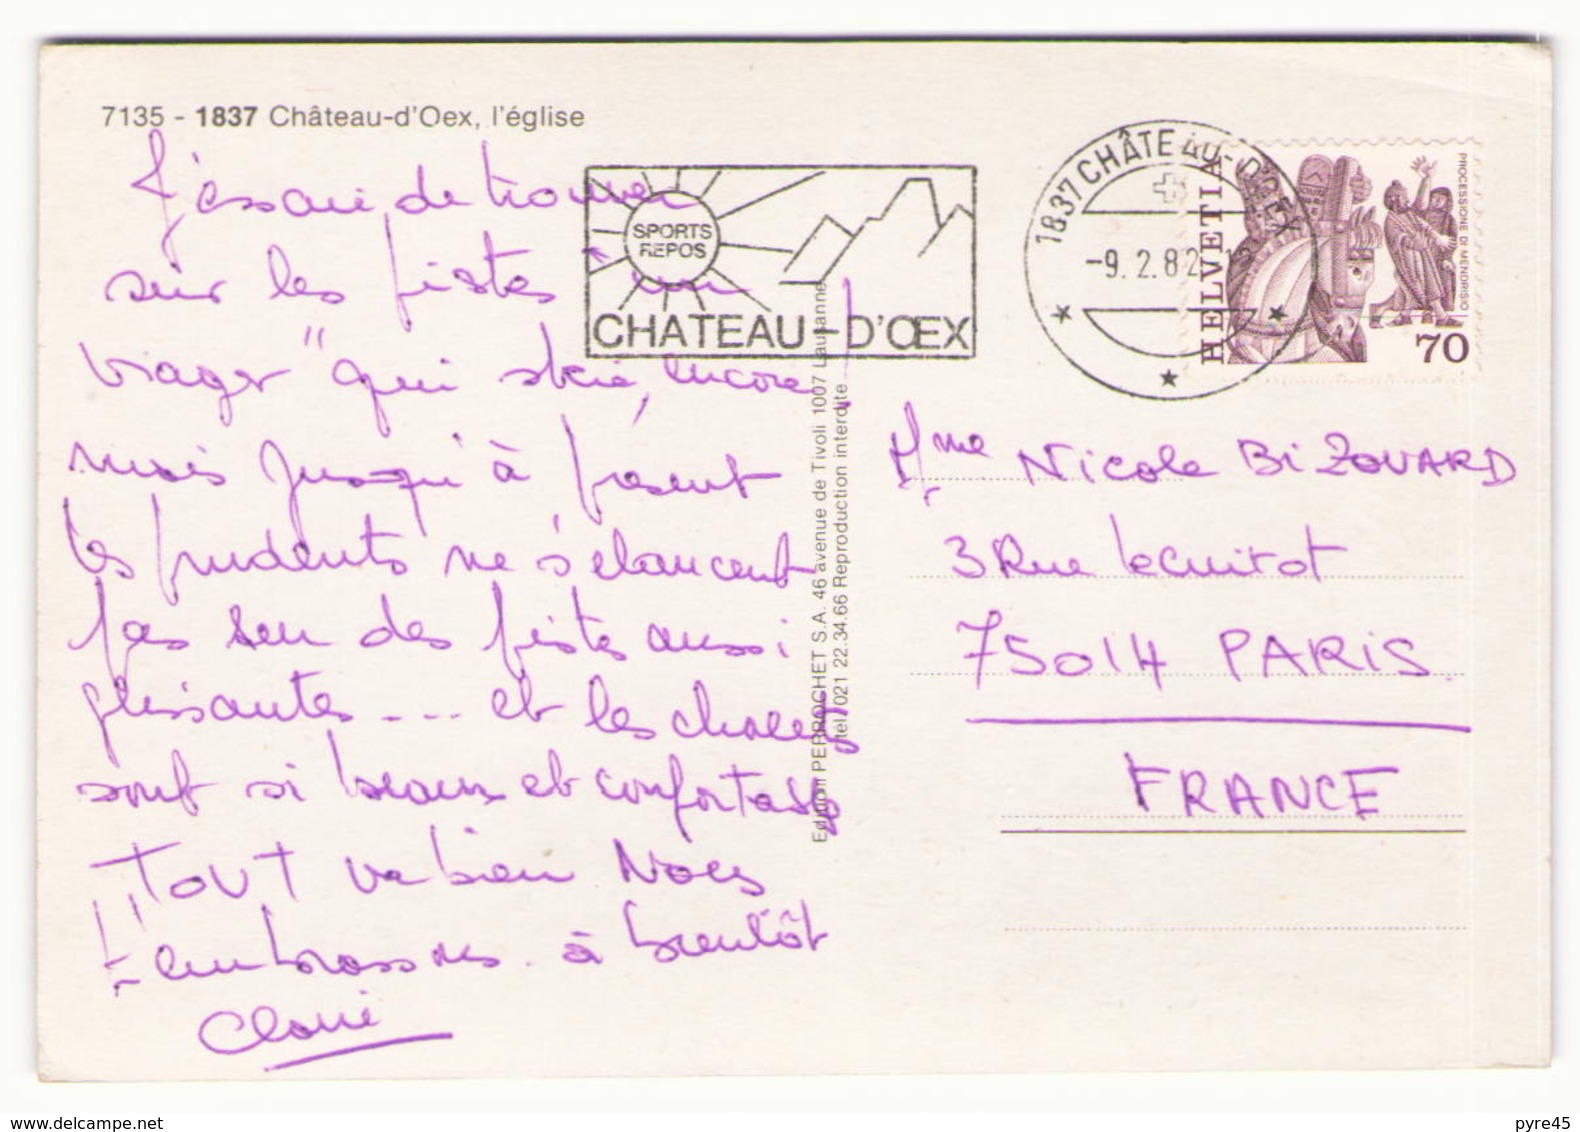 7135 - 1837 Château-d'Oex, l'église
SPORTS
REPOS
CHATEAU-D'ŒX
1837 CHÂTEAU-D'ŒX
-9. 2. 82
HELVETIA
PROCESSIONE DI MENDRISIO
70
J'essaie de trouver
sur les pistes "un
viager" qui skie encore!
mais jusqu'à présent
les prudents ne s'élancent
pas sur des pistes aussi
glissantes.... et les chalets
sont si beaux et confortables
TOUT va bien Nous
t'embrassons à bientôt
Edition PERROCHET S.A. 46 avenue de Tivoli 1007 Lausanne
tel. 021 22.34.66 Reproduction interdite
Mme Nicole BiZOUARD
3 Rue Lecuirot
75014 PARiS
FRANCE
www.delcampe.net
pyre45